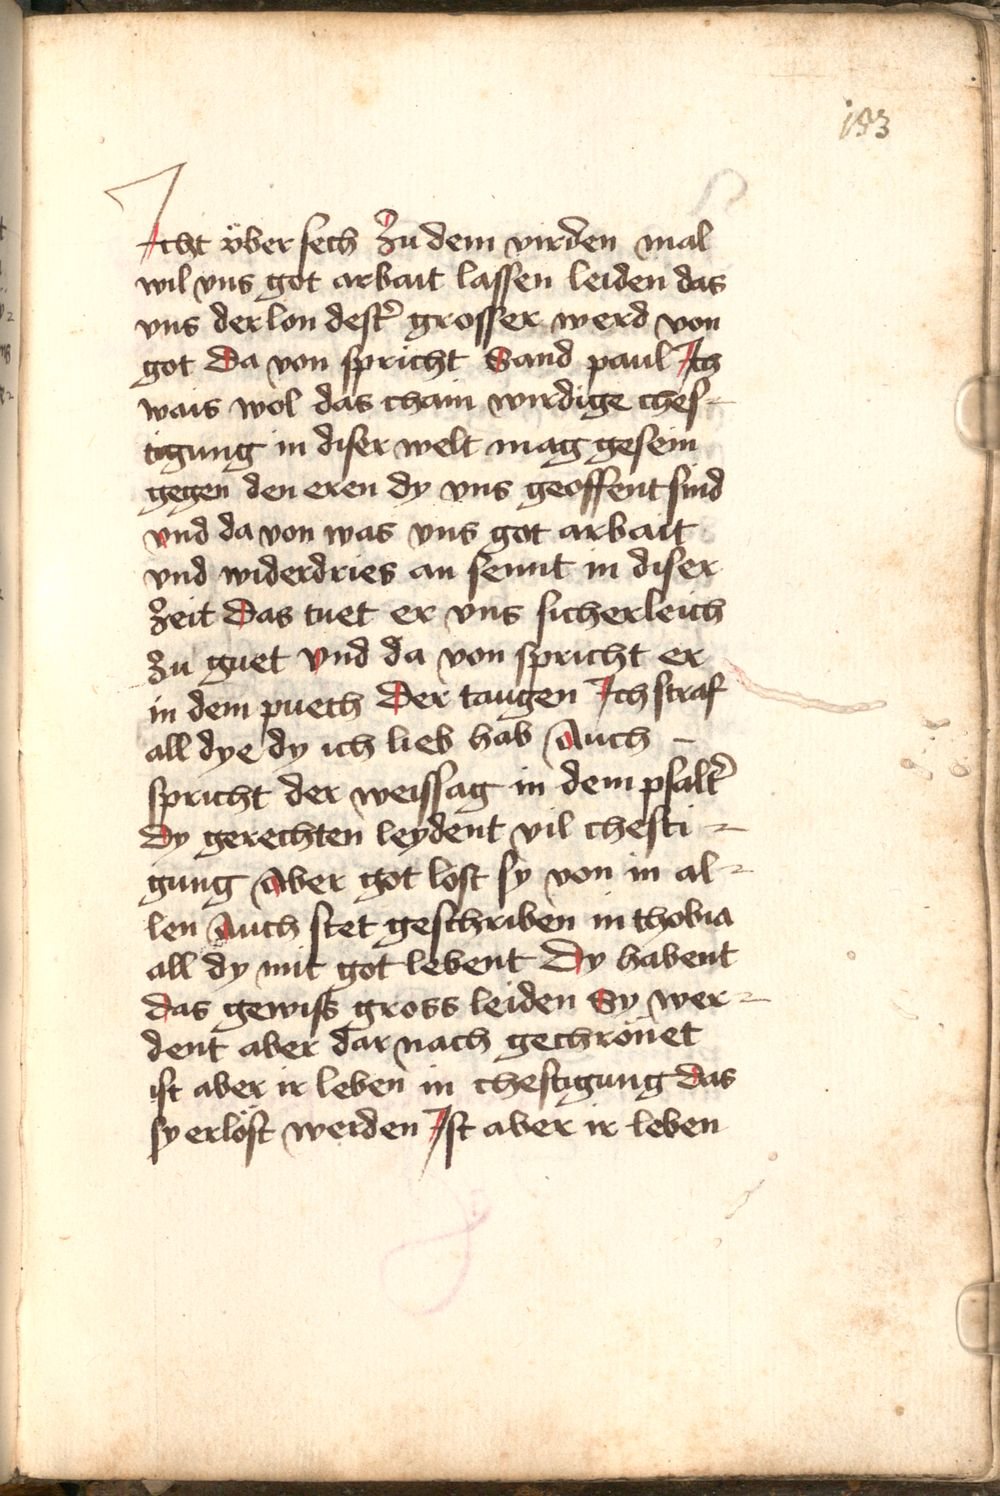 183
Icht vber sech Zu dem virden mal
wil vns got arbait lassen leiden das
vns der lon dest̉ grosser werd von
got Da von spricht Sand paul Ich
wais wol das chain wirdige ches-
tigung in diser welt mag gesein
gegen den eren dy vns geoffent sind
vnd da von was vns got arbait
vnd widerdries an sennt in diser
Zeit Das tuet er vns sicherleich
Zu guet Vnd da von spricht er
in dem puech Der taugen Ich straf
all dye dy ich lieb hab Auch -
spricht der weissag in dem psalt̉
Dy gerechten leydent vil chesti-
gung Aber got lost sy von in al-
len Auch stet geschriben in thobia
all dy mit got lebent Dy habent
das gewiss gross leiden Sy wer-
dent aber dar nach gechrönet
ist aber ir leben in chestigung das
sy erlöst werden Ist aber ir leben